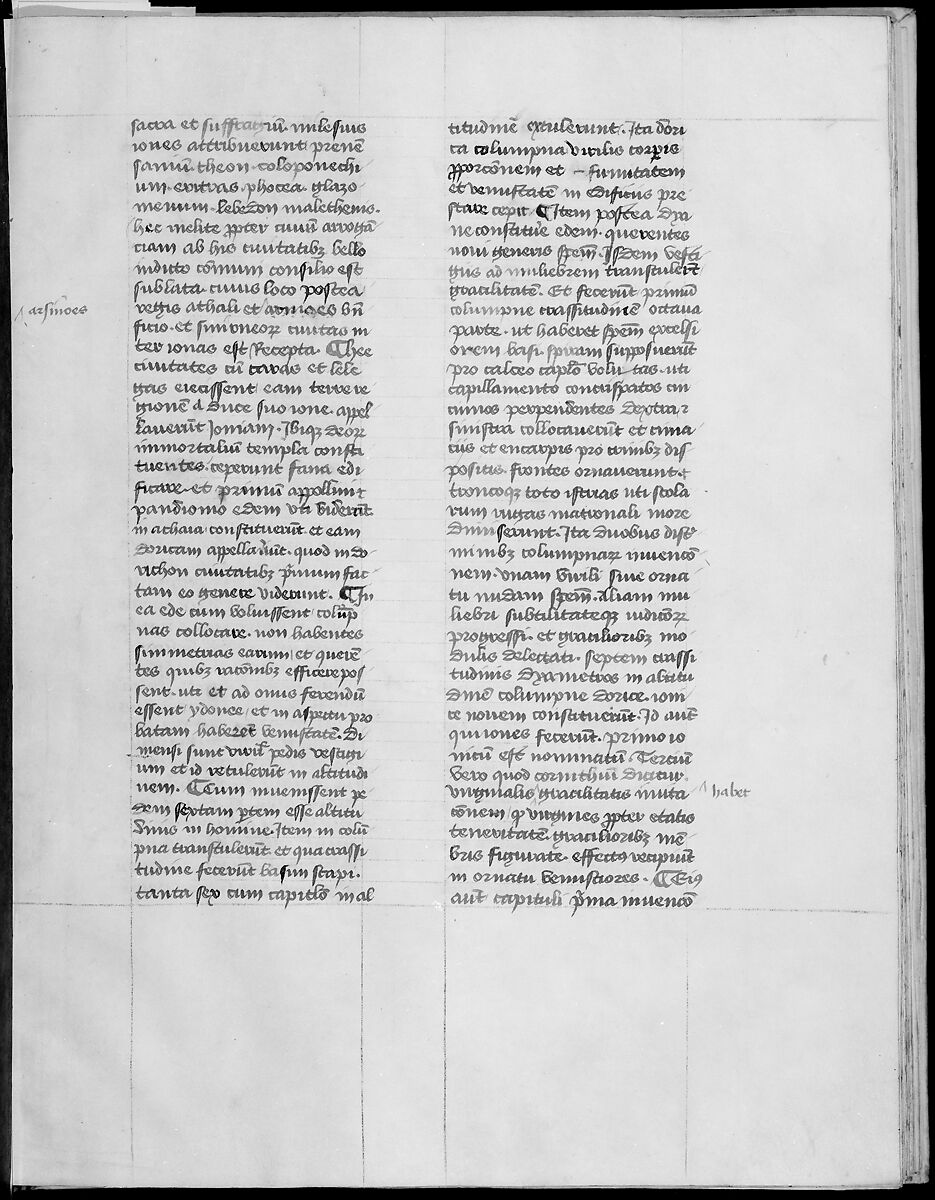 sacra et suffragiū. milesius
iones attribuerunt prenen̄
samiū. theon. coloponechi
um. eritras. phocea. glazo
menium. lebedon malethenis.
hec melite ꝓpter ciuiū arrogā
ciam ab his ciuitatibꝫ bello
indicto cōmuni consilio est
sublata. cuius loco postea
regis athali et arnioes bn̄
ficio. et smirneoꝝ ciuitas in
arsinoes
ter ionas est Recepta. ¶ Thee
ciuitates cū caras et lele
gas eiecissent eam terre re
gionē a duce suo ione. appel
lauerūt Joniam. Ibiqꝫ deoꝝ
immortaliū templa consti
tuentes. ceperunt fana edi
ficare. et primū appollini
pandionio edem uti viderūt
in achaia constituerūt. et eam
doricam appellauerūt. quod in do
richon ciuitatibꝫ p̄mum fac
tam eo genere viderunt. ¶ In
ea ede cum voluissent colūp
nas collocare. non habentes
simmetrias earum et querē
tes quibꝫ racōnibꝫ efficere pos
sent. uti et ad onus ferendū
essent ydonee, et in aspectu pro
batam haberēt venustatē. Di
mensi sunt virilꝭ pedis vestigi
um et id retulerūt in altitudi
nem. ¶ Cum inuenissent pe
dem sextam ꝑtem esse altitu
dinis in homine. Item in colū
pna transtulerūt. et qua crassi
tudine fecerūt basim scapi.
tanta sex cum capitlo in al
titudinē extulerunt. Ita dori
ca columpna virilis corꝑis
ꝓporcōnem et firmitatem
et venustatē in edificiis pre
stare cepit ¶ Item postea dya
ne constituere edem. querentes
noui generis spēm. Isdem vesti
giis ad muliebrem transtulerūt
gracilitatē. Et fecerūt primū
columpne crassitudinē octaua
parte. ut haberet spēm excelsi
orem basi. spiram supposuerūt
pro calceo capl̄o volutas. uti
capillamento concrispatos cin
cinnos perpendentes dextra ⁊
sinistra collocauerūt et cima
ciis et encarpis pro crinibꝫ dis
positis. frontes ornauerunt.
troncoqꝫ toto istrias uti stola
rum rugas matronali more
dimiserunt. Ita duobus disc̄
minibꝫ columpnaꝝ inuencō
nem. vnam virili siue orna
tu nudam spēm. Aliam mu
liebri subtilitateqꝫ
progressi. et gracilioribꝫ mo
dulis delectati. septem crassi
tudinis dyametros in altitu
dinē columpne dorice. ioni
ce nouem constituerūt. Id aut̄
qui iones fecerūt. primo io
nicū est nominatū. Terciū
vero quod corinthiū dicitur.
virginalis gracilitatis imita
habet
cōnem. qꝫ virgines ꝓpter etatis
teneritatē. gracilioribꝫ mē
bris figurate. effectus recipiūt
in ornatu venustiores. ¶ Eiꝰ
aut̄ capituli p̄ma inuencō